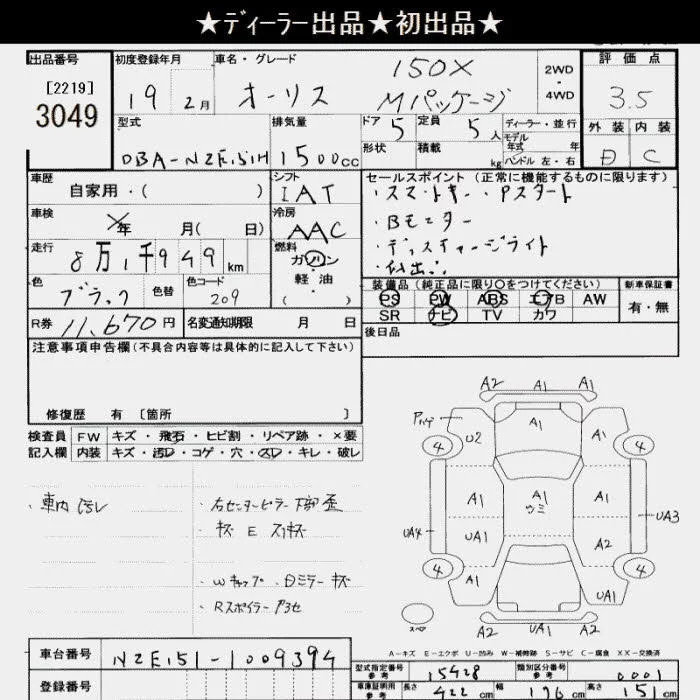 ★ディーラー出品★初出品★
出品番号
[2219]
3049
初度登録年月
19 2月
車名・グレード
オーリス
150X
Mパッケージ
2WD
4WD
評価点
3.5
外装 内装
D C
型式
DBA-NZE151H
排気量
1500cc
ドア 5
定員 5人
形状
積載 kg
ディーラー・並行
モデル年式 年
ハンドル 左・右
車歴
自家用・( )
シフト
IAT
セールスポイント (正常に機能するものに限ります)
・スマートキー・Pスタート
・Bモニター
・ディスチャージライト
車検
年 月( 日)
冷房
AAC
走行
8万1千949km
燃料
ガソリン
軽油
( ・ )
色
ブラック
色替
色コード
209
装備品 (純正品に限り○をつけてください)
PS PW ABS エアB AW
SR ナビ TV カワ
新車保証書
有・無
R券 11,670円
名変通知期限 月 日
後日品
注意事項申告欄 (不具合内容等は具体的に記入して下さい)
修復歴 有 [箇所 ]
検査員記入欄
FW キズ・飛石・ヒビ割・リペア跡・×要
内装 キズ・汚レ・コゲ・穴・スレ・キレ・破レ
・車内汚レ
・右センターピラー下部歪
・Wキャップ・Dミラーキズ
・Rスポイラー
A2 A1 A1
U2 A1 A1
4 4
A1 A1 ウミ A1
UA4 UA1 A2 UA3
4 4
A1 UA1
スペア
A2 UA1 A2
A-キズ E-エクボ U-凹み W-補修跡 S-サビ C-腐食 XX-交換済
車台番号 NZE151-1009394
登録番号
型式指定番号 参考 15428
類別区分番号 参考 0001
車庫証明用 参考 長さ 422cm 幅 176cm 高さ 151cm